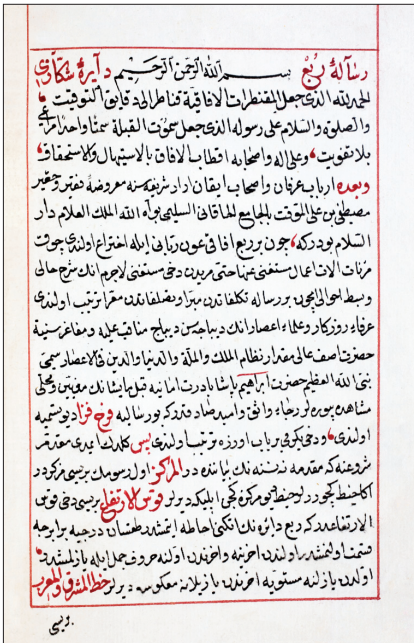 رسالهٔ ربع بسم الله الرحمن الرحيم دايرهٔ شكازى
الحمد لله الذى جعل المقنطرات الافاقية قناطر الى دقايق التوقيت
والصلوة والسلام على رسوله الذى جعل سموت القبلة سمتا واحدا
بلا تفويت وعلى اله واصحابه اقطاب الافاق بالاستيهال والاستحقاق
وبعده ارباب عرفان واصحاب ايقان ادار شريفه سنه معروضهٔ فقير وحقير
مصطفى بن على الموقت بالجامع الخاقانى السليمى بوأه الله الملك العلام دار
السلام بودركه چون بر ربع افاقى عون ربانى ايله اختراع اولندى جوق
مرتبات الات اعمالدن مستغنى دخى مستغنى لاجرم انك شرح حالى
وبسط احوالى ايچون بر رساله تكلفاتدن مبرا وتصلفاتدن معرا ترتيب اولندى
عرفاء روزكار وعلماء اعصار انك ديباجه سن ديباج مناقب عليه ومفاخر سنيهٔ
حضرت اصف عالى مقدار نظام الملك والملة والدنيا والدين فى الاعصار سمى
نبى الله العظيم حضرت ابراهيم پاشا
مشاهده بيوررلر رجاء واثق واميد صادقدركه بو رساليه فرح فزا ديو تسميه
اولندى ودخى يكرمى بر باب اوزره ترتيب اولندى پس كلدك ايمدى مقدمه
شروعنه كه مقدمه نه نسنه نك بياننده در المركز اول رسومك بريسى مركزدر
اكا خيط كچوررلر وخيط دخى مركزه كچى ايليكدر ديرلر قوس الارتفاع بريسى دخى قوس
الارتفاعدركه ربع دايره نك احاطه ايتمشدر طقسان درجيه برابرجه
قسمت اولنمشدر اولندن اخرينه واخرندن اولنه حروف جمل ايله يازلمشدر
اولدن يازلنه مستويه اخرندن يازيلانه معكوسه ديرلر خط المشرق والمغرب